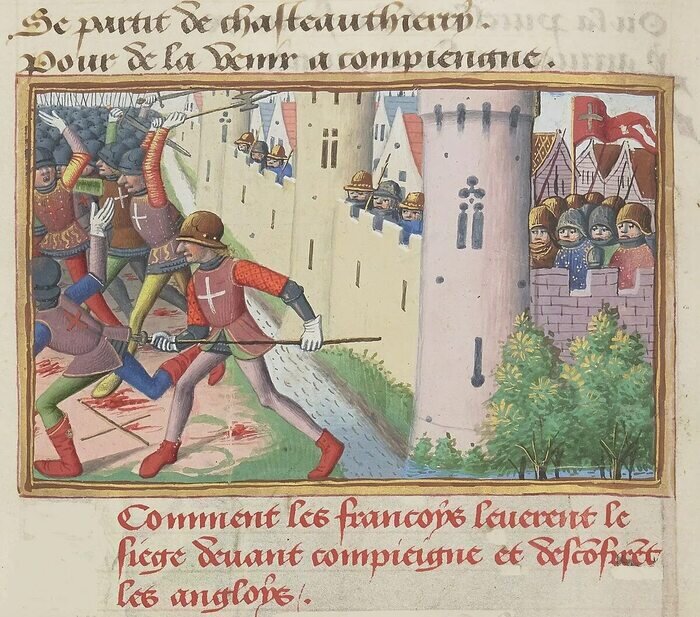 Se partit de chasteauthierry.
Pour de la venir a compiengne.
Comment les francoys leuerent le
siege deuant compieigne et desconfirẽt
les angloys /.